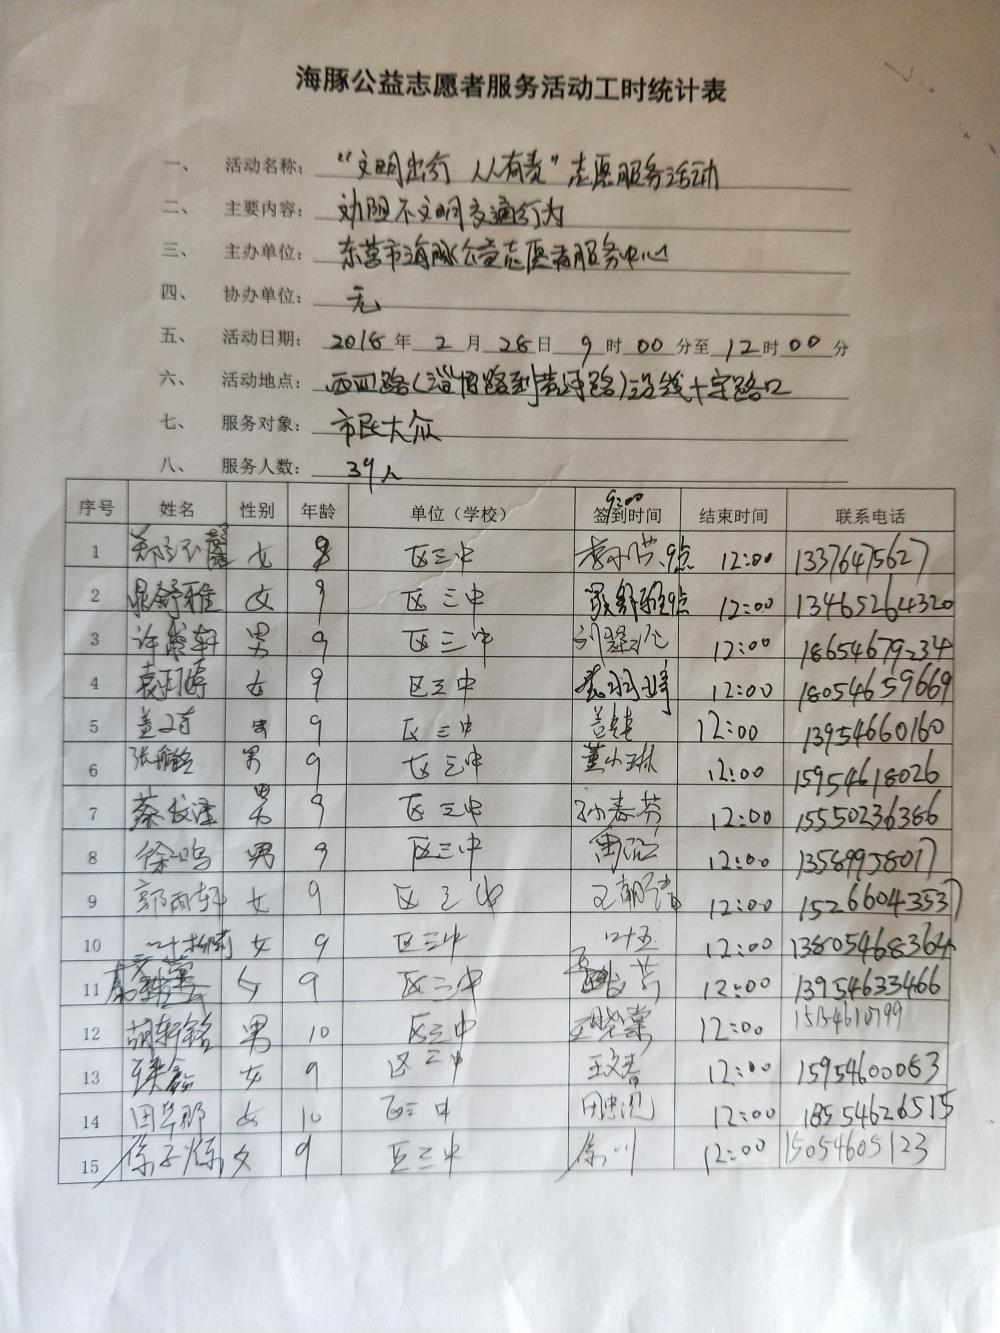 海豚公益志愿者服务活动工时统计表
一、 活动名称: “文明出行 人人有责”志愿服务活动
二、 主要内容: 劝阻不文明交通行为
三、 主办单位: 东营市海豚公益志愿者服务中心
四、 协办单位: 无
五、 活动日期: 2018年 2月28日 9时00分至12时00分
六、 活动地点: 西四路(淄博路到黄河路)沿线十字路口
七、 服务对象: 市民大众
八、 服务人数: 39人
9:00
序号 姓名 性别 年龄 单位(学校) 签到时间 结束时间 联系电话
1 女 9 区三中 9点 12:00 13376475627
2 舒雅 女 9 区三中 舒雅 9点 12:00 13465264320
3 许 轩 男 9 区三中 12:00 18654679234
4 袁 女 9 区三中 袁 12:00 18054659669
5 盖 男 9 区三中 盖 12:00 13954660160
6 张 铭 男 9 区三中 董小琳 12:00 15954618026
7 蔡 男 9 区三中 孙春芬 12:00 15550236386
8 徐 男 9 区三中 12:00 13589958017
9 郭雨轩 女 9 区三中 王朝 12:00 15266043537
10 女 9 区三中 12:00 13805468364
11 女 9 区三中 芳 12:00 13954633466
12 胡轩铭 男 10 区三中 王 12:00
13 鑫 女 9 区三中 王文 12:00 15954600063
14 田 女 10 区三中 田 12:00 18554626515
15 徐子 女 9 区三中 徐川 12:00 15054605123